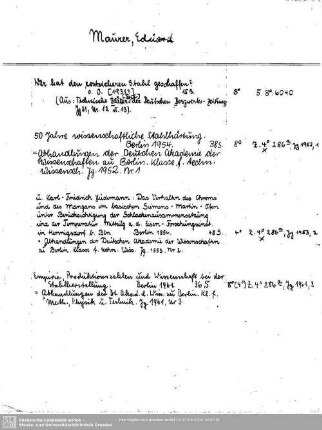 Maurer, Eduard
Wer hat den rostsicheren Stahl geschaffen?
o. O. [1939?] 15 S. 8° 5. 8° 6040
(Aus: Technische Blätter der Deutschen Bergwerks-Zeitung
Jg 21, Nr. 12 u. 13).
50 Jahre wissenschaftliche Stahlhärtung.
Berlin 1954. 38 S. 8° Z. 4° 286, Jg 1952, 1
= Abhandlungen der Deutschen Akademie der
Wissenschaften zu Berlin. Klasse f. techn.
Wissensch. Jg. 1952. Nr. 1
u. Karl-Friedrich Lüdemann: Das Verhalten des Chroms
und des Mangans im basischen Siemens-Martin-Ofen
unter Berücksichtigung der Schlackenzusammensetzung
und der Temperatur. Mitteilg a. d. Eisen-Forschungsinst.
in Hennigsdorf b. Bln Berlin 1954. 4° Z. 4° 286, Jg 1953, 2
= Abhandlungen der Deutschen Akademie der Wissenschaften
zu Berlin. Klasse f. techn. Wiss. Jg. 1953, Nr 2.
Empirie, Produktionszahlen und Wissenschaft bei der
Stahlherstellung. Berlin 1961. 36 S. 8° (4°) Z. 4° 286, Jg 1961, 3
= Abhandlungen der Dt. Akad. d. Wiss. zu Berlin. Kl. f.
Math., Physik u. Technik. Jg 1961, Nr 3.